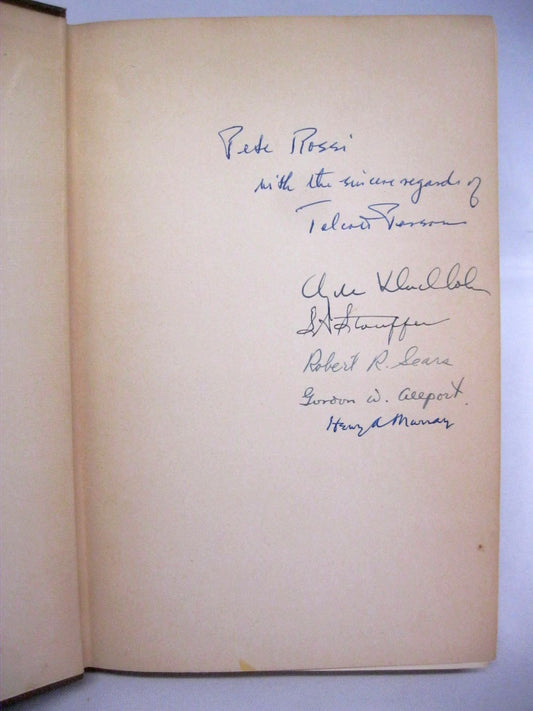 Pete Rossi
with the sincere regards of
Talcott Parsons
Clyde Kluckhohn
S A Stouffer
Robert R. Sears
Gordon W. Allport.
Henry A Murray